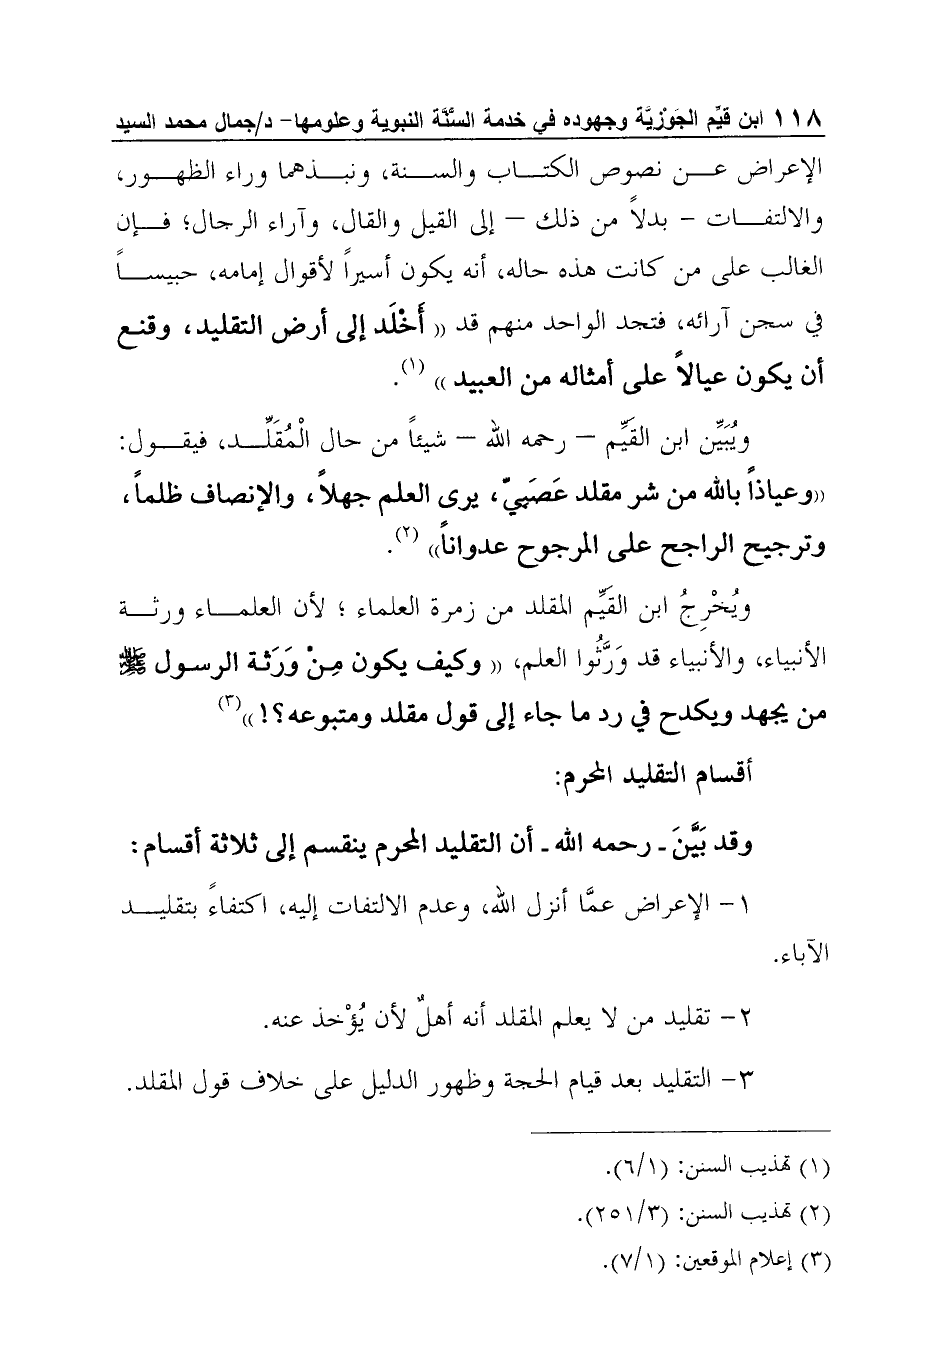 ١١٨ ابن قيِّم الجَوْزيَّة وجهوده في خدمة السُّنَّة النبوية وعلومها- د/جمال محمد السيد
الإعراض عن نصوص الكتاب والسنة، ونبذهما وراء الظهور،
والالتفات – بدلاً من ذلك – إلى القيل والقال، وآراء الرجال؛ فإن
الغالب على من كانت هذه حاله، أنه يكون أسيراً لأقوال إمامه، حبيساً
في سجن آرائه، فتجد الواحد منهم قد (( أَخْلَد إلى أرض التقليد، وقنع
أن يكون عيالاً على أمثاله من العبيد )) (١).
ويُبَيِّن ابن القَيِّم – رحمه الله – شيئاً من حال الْمُقَلِّد، فيقول:
((وعياذاً بالله من شر مقلد عَصَبيّ، يرى العلم جهلاً، والإنصاف ظلماً،
وترجيح الراجح على المرجوح عدواناً)) (٢).
ويُخْرِجُ ابن القَيِّم المقلد من زمرة العلماء ؛ لأن العلماء ورثة
الأنبياء، والأنبياء قد وَرَّثُوا العلم، (( وكيف يكون مِنْ وَرَثة الرسول ﷺ
من يجهد ويكدح في رد ما جاء إلى قول مقلد ومتبوعه؟! ))(٣)
أقسام التقليد المحرم:
وقد بَيَّنَ ـ رحمه الله ـ أن التقليد المحرم ينقسم إلى ثلاثة أقسام :
١- الإعراض عمَّا أنزل الله، وعدم الالتفات إليه، اكتفاءً بتقليد
الآباء.
٢- تقليد من لا يعلم المقلد أنه أهلٌ لأن يُؤْخذ عنه.
٣- التقليد بعد قيام الحجة وظهور الدليل على خلاف قول المقلد.
(١) تهذيب السنن: (٦/١).
(٢) تهذيب السنن: (٢٥١/٣).
(٣) إعلام الموقعين: (٧/١).